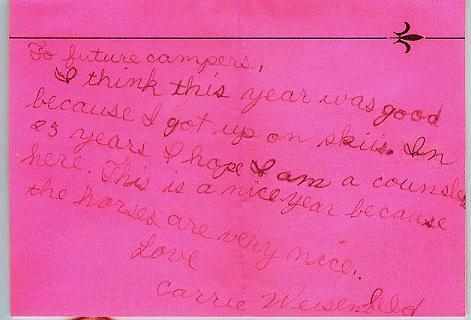 To future campers,
I think this year was good
because I got up on skiis. In
23 years I hope I am a counsler
here. This is a nice year because
the horses are very nice.
Love
Carrie Weisenfeld